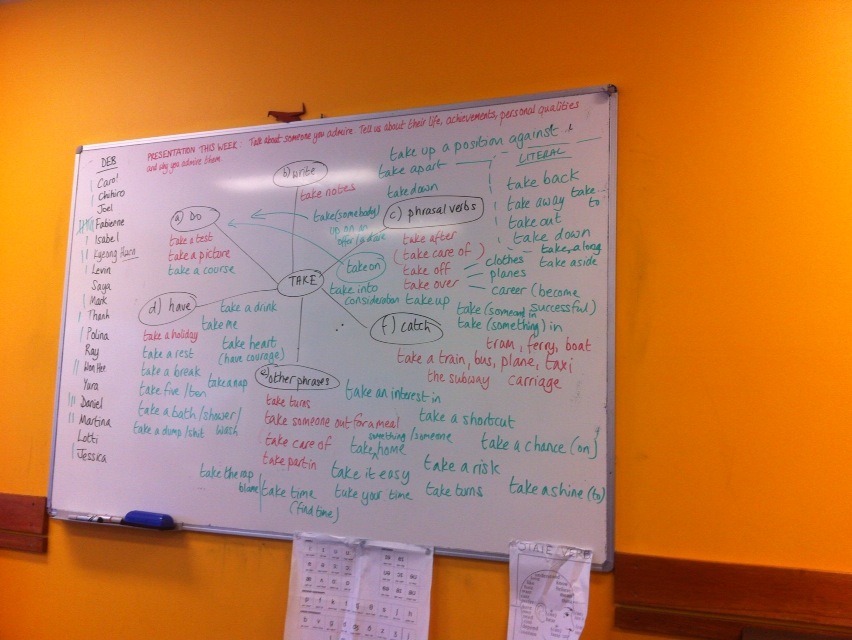 PRESENTATION THIS WEEK: Talk about someone you admire. Tell us about their life, achievements, personal qualities
and why you admire them.
DEB
Caro!
Chihiro
Joel
Fabienne
Isabel
Kyeong Hwan
Levin
Saya
Mark
Thanh
Polina
Ray
Won Hee
Yura
Daniel
Martina
Lotti
Jessica
TAKE
a) DO
take a test
take a picture
take a course
b) write
take notes
c) phrasal verbs
take up a position against
take apart
take down
take (somebody)
up on an
offer/a dare
take on
take into
consideration
take after
(take care of)
take off
clothes
planes
take over
career (become
successful)
take up
take (someone) in
take (something) in
LITERAL
take back
take away
take to
take out
take down
take along
take aside
d) have
take a drink
take me
take a holiday
take heart
(have courage)
take a rest
take a break
take a nap
take five/ten
take a bath/shower/
wash
take a dump/shit
e) other phrases
take turns
take someone out for a meal
take care of
take part in
take an interest in
take a shortcut
something/someone
take home
take a chance (on)
take it easy
take a risk
take the rap
blame
take time
(find time)
take your time
take turns
take a shine (to)
f) catch
tram, ferry, boat
take a train, bus, plane, taxi
the subway carriage
STATE VERBS